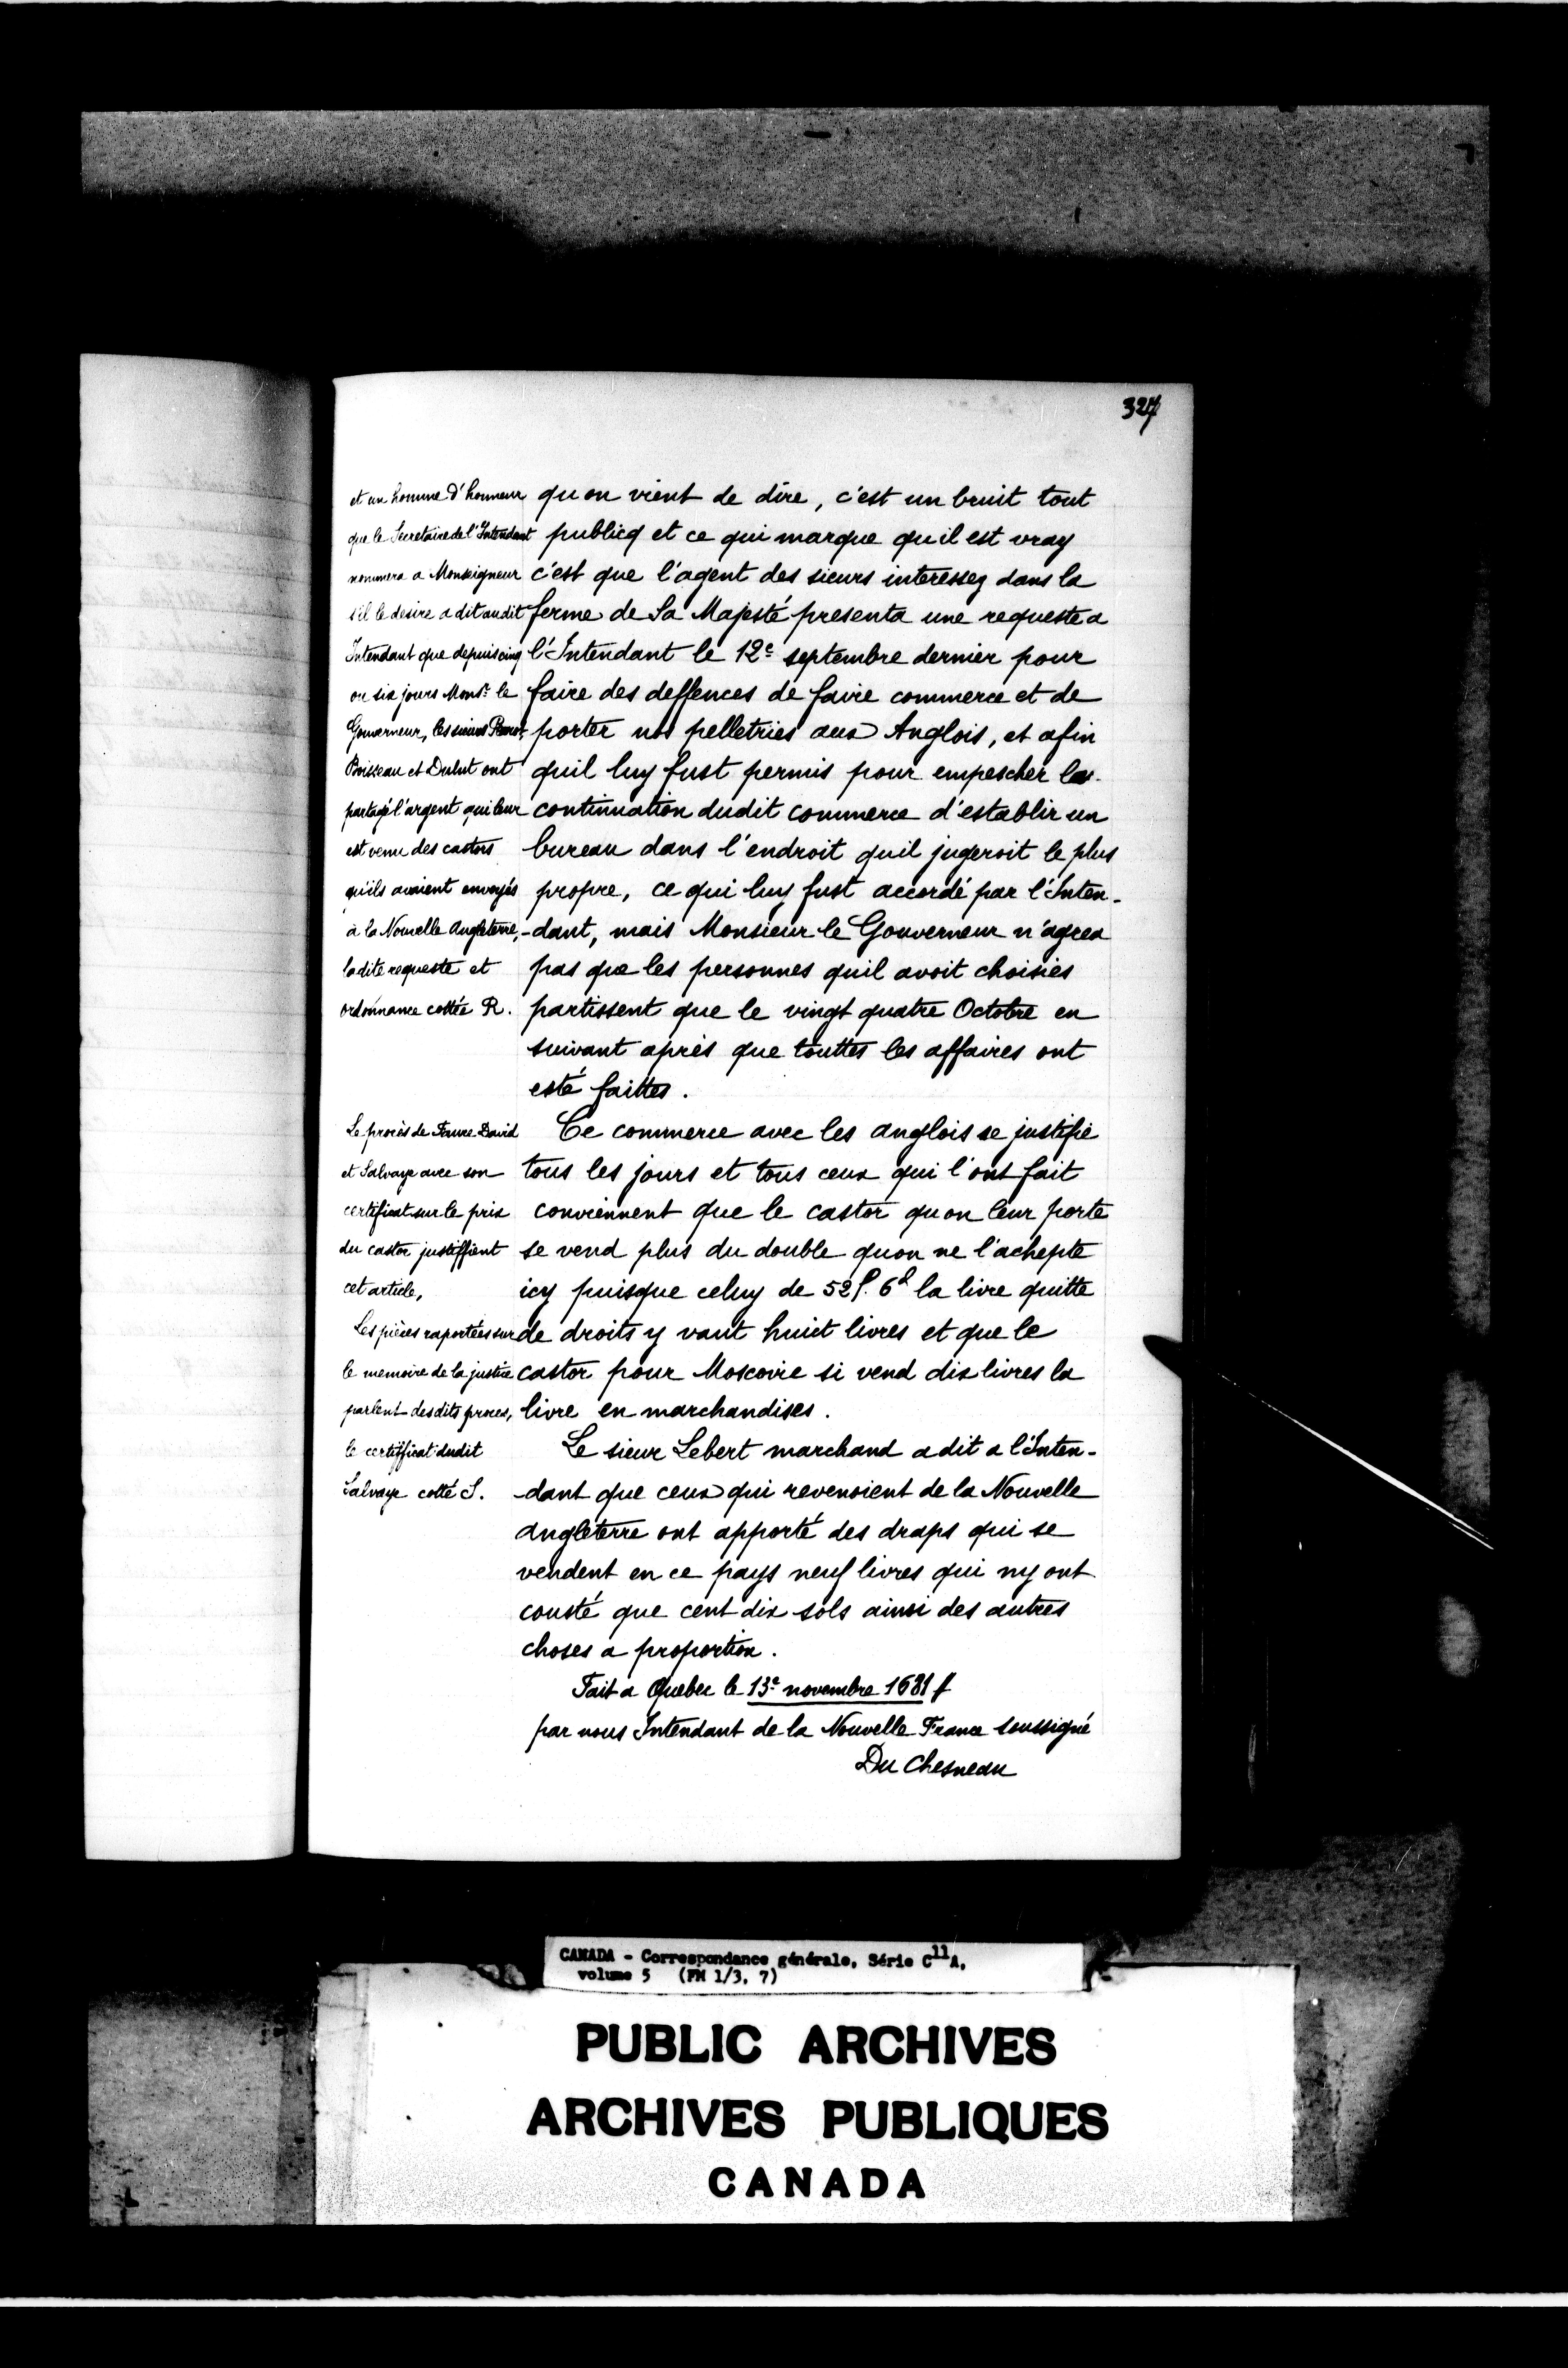 327
et un homme d'honneur
que le Secretaire de l'Intendant
nommera a Monseigneur
s'il le desire a dit audit
Intendant que depuis cinq
ou six jours Monsr. le
Gouverneur, les sieurs Perrot,
Boisseau et Dulut ont
partagé l'argent qui leur
est venu des castors
qu'ils avaient envoyés
à la Nouvelle Angleterre,
ladite requeste et
ordonnance cottée R.
quon vient de dire, c'est un bruit tout
publicq et ce qui marque quil est vray
c'est que l'agent des sieurs interessez dans la
ferme de Sa Majesté presenta une requeste a
l'Intendant le 12e septembre dernier pour
faire des deffences de faire commerce et de
porter nos pelletries aux Anglois, et afin
quil luy fust permis pour empescher la
continuation dudit commerce d'establir un
bureau dans l'endroit quil jugeroit le plus
propre, ce qui luy fust accordé par l'Inten-
-dant, mais Monsieur le Gouverneur n'agrea
pas que les personnes quil avoit choisies
partissent que le vingt quatre Octobre en
suivant après que touttes les affaires ont
esté faittes.
Le procès de Favre David
et Salvaye avec son
certificat sur le prix
du castor justiffient
cet article,
Les pièces raportées sur
le memoire de la justice
parlent desdits proces,
le certifficat dudit
Salvaye cotté S.
Ce commerce avec les anglois se justifie
tous les jours et tous ceux qui l'ont fait
conviennent que le castor quon leur porte
se vend plus du double quon ne l'achepte
icy puisque celuy de 52s. 6d la livre quitte
de droits y vaut huict livres et que le
castor pour Moscovie si vend dix livres la
livre en marchandises.
Le sieur Lebert marchand a dit a l'Inten-
-dant que ceux qui revenoient de la Nouvelle
Angleterre ont apporté des draps qui se
vendent en ce pays neuf livres qui ny ont
cousté que cent dix sols ainsi des autres
choses a proportion.
Fait a Quebec le 13e novembre 1681
par nous Intendant de la Nouvelle France soussigné
Du Chesneau
CANADA - Correspondance générale, Série C11A,
volume 5 (FM 1/3, 7)
PUBLIC ARCHIVES
ARCHIVES PUBLIQUES
CANADA